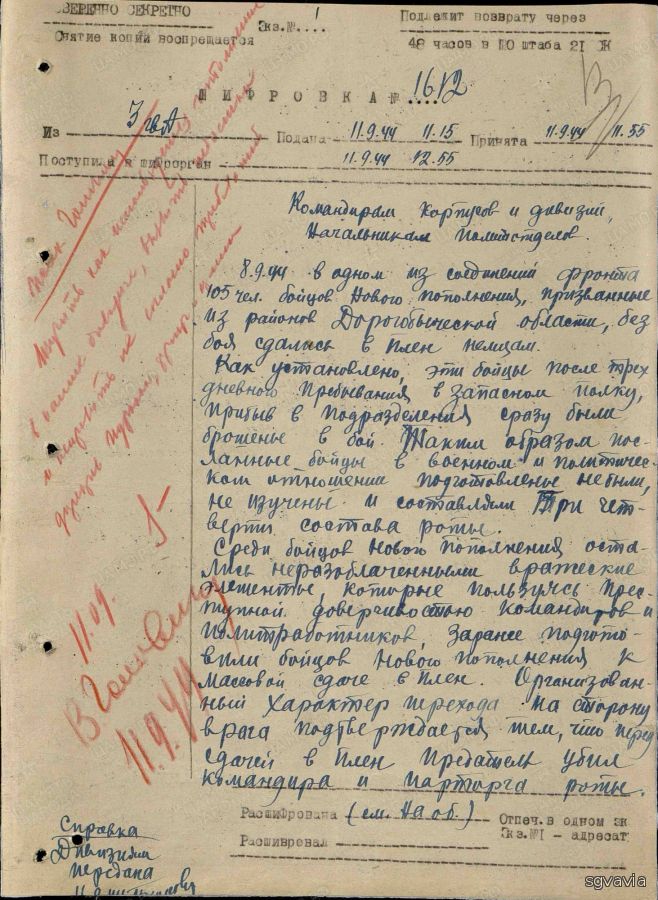 СОВЕРШЕННО СЕКРЕТНО
Экз.№ 1
Подлежит возврату через
Снятие копий воспрещается
48 часов в ПО штаба 21 Ж
ШИФРОВКА № 1612
Из 3 гв А Подана 11.9.44 11.15 Принята 11.9.44 11.55
Поступила в шифрорган 11.9.44 12.55
Командирам корпусов и дивизий,
Начальникам политотделов.
8.9.44 в одном из соединений фронта
105 чел. бойцов нового пополнения, призванные
из районов Дорогобычской области, без
боя сдались в плен немцам.
Как установлено, эти бойцы после трех
дневного пребывания в запасном полку,
прибыв в подразделения сразу были
брошены в бой. Таким образом пос-
ланные бойцы в военном и политичес-
ком отношении подготовлены не были,
не изучены и составляли три чет-
верти состава роты.
Среди бойцов нового пополнения оста-
лись неразоблаченными вражеские
элементы, которые пользуясь прес-
тупной доверчивостью командиров и
политработников, заранее подгото-
вили бойцов нового пополнения к
массовой сдаче в плен. Организован-
ный характер перехода на сторону
врага подтверждается тем, что перед
сдачей в плен предатель убил
командира и парторга роты.
Расшифрована (см. на об.)
Отпеч. в одном эк
Расшивревал
Экз.№I - адресат
11.09.
11.9.44
Справка
Дивизиям
передана
sgvavia